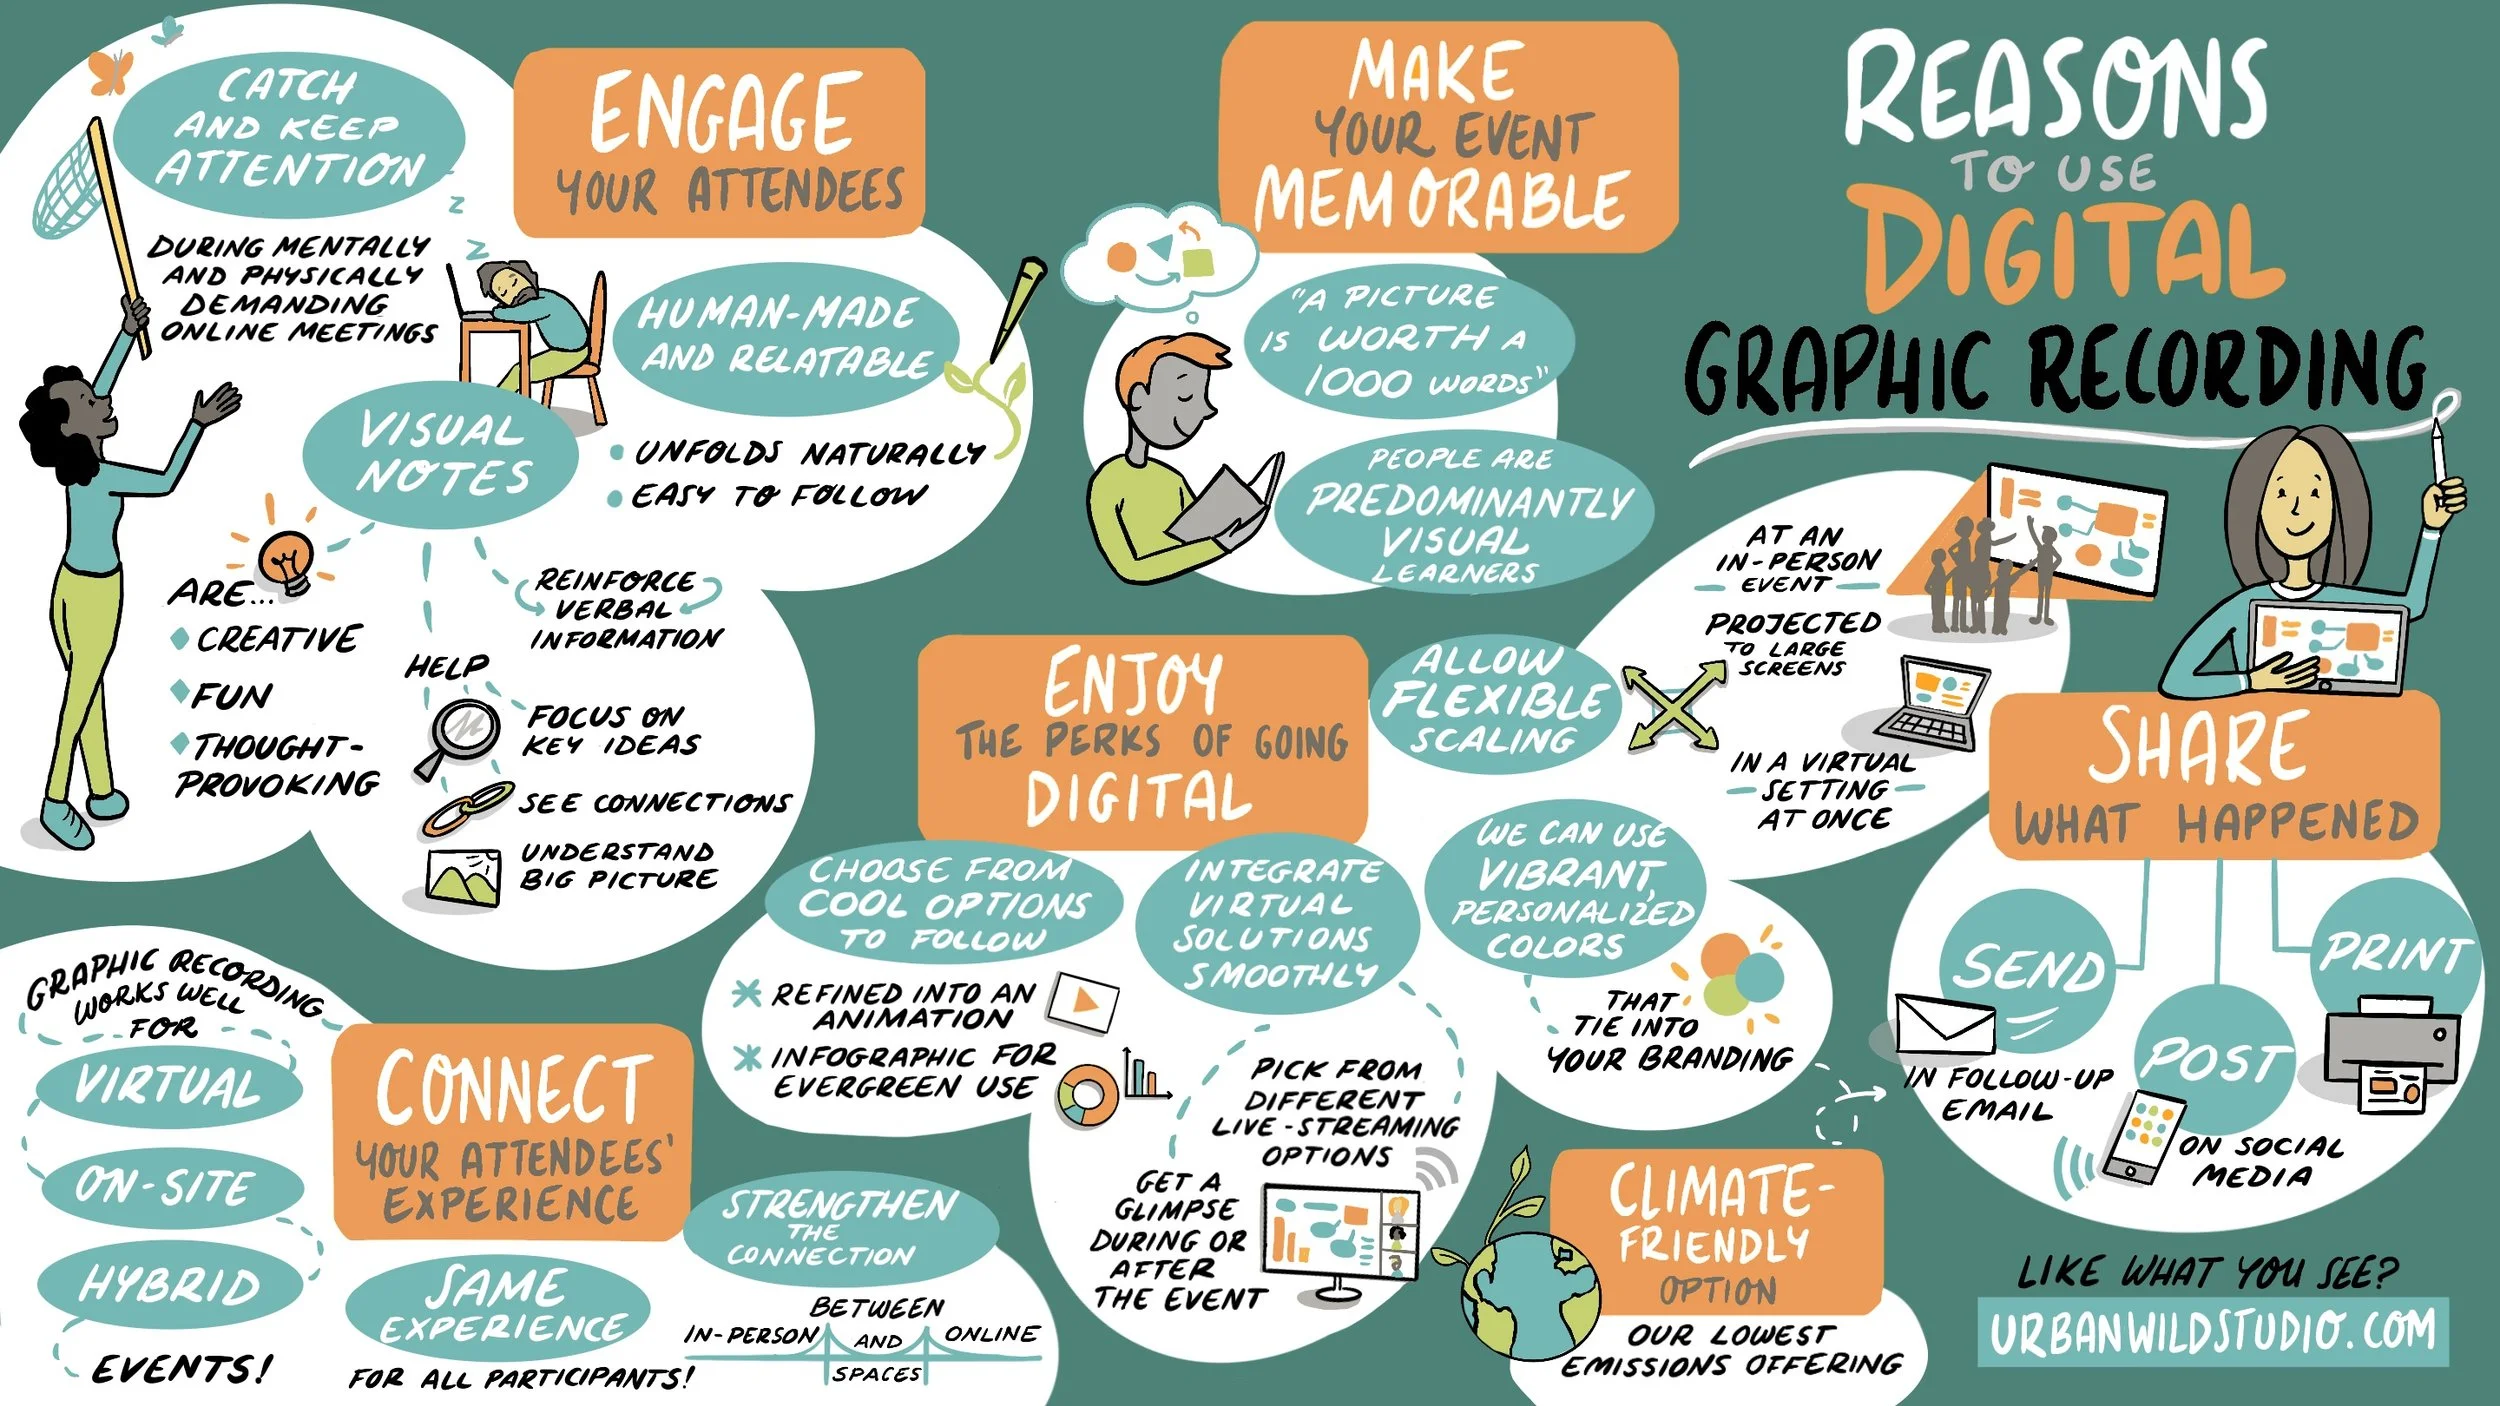 REASONS
TO USE
DIGITAL
GRAPHIC RECORDING
ENGAGE
YOUR ATTENDEES
CATCH
AND KEEP
ATTENTION
DURING MENTALLY
AND PHYSICALLY
DEMANDING
ONLINE MEETINGS
Z
Z
Z
HUMAN-MADE
AND RELATABLE
UNFOLDS NATURALLY
EASY TO FOLLOW
VISUAL
NOTES
ARE...
CREATIVE
FUN
THOUGHT-
PROVOKING
HELP
FOCUS ON
KEY IDEAS
SEE CONNECTIONS
UNDERSTAND
BIG PICTURE
REINFORCE
VERBAL
INFORMATION
MAKE
YOUR EVENT
MEMORABLE
"A PICTURE
IS WORTH A
1000 WORDS"
PEOPLE ARE
PREDOMINANTLY
VISUAL
LEARNERS
ENJOY
THE PERKS OF GOING
DIGITAL
ALLOW
FLEXIBLE
SCALING
AT AN
IN-PERSON
EVENT
PROJECTED
TO LARGE
SCREENS
IN A VIRTUAL
SETTING
AT ONCE
CHOOSE FROM
COOL OPTIONS
TO FOLLOW
REFINED INTO AN
ANIMATION
INFOGRAPHIC FOR
EVERGREEN USE
INTEGRATE
VIRTUAL
SOLUTIONS
SMOOTHLY
PICK FROM
DIFFERENT
LIVE-STREAMING
OPTIONS
GET A
GLIMPSE
DURING OR
AFTER
THE EVENT
WE CAN USE
VIBRANT,
PERSONALIZED
COLORS
THAT
TIE INTO
YOUR BRANDING
SHARE
WHAT HAPPENED
SEND
IN FOLLOW-UP
EMAIL
POST
ON SOCIAL
MEDIA
PRINT
CONNECT
YOUR ATTENDEES'
EXPERIENCE
GRAPHIC RECORDING
WORKS WELL
FOR
VIRTUAL
ON-SITE
HYBRID
EVENTS!
SAME
EXPERIENCE
FOR ALL PARTICIPANTS!
STRENGTHEN
THE
CONNECTION
BETWEEN
IN-PERSON AND ONLINE
SPACES
CLIMATE-
FRIENDLY
OPTION
OUR LOWEST
EMISSIONS OFFERING
LIKE WHAT YOU SEE?
URBANWILDSTUDIO.COM